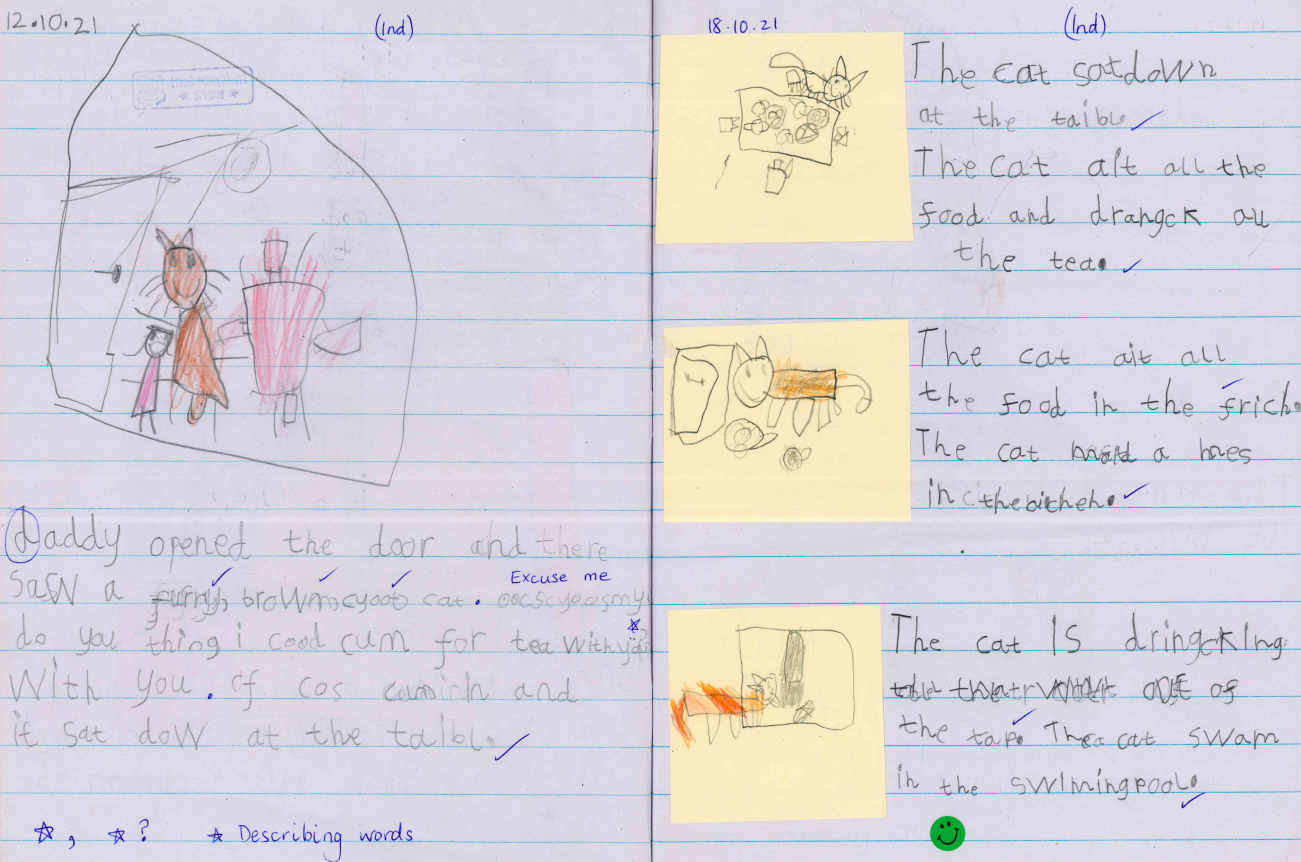 12.10.21
(Ind)
daddy opened the door and there
saw a furry, brown, cyoot cat.
Excuse me
do you thing i cood cum for tea with
with you. of cos cum inh and
it sat dow at the taibl.
☆, ☆? ☆ Describing words
18.10.21
(Ind)
The cat satdown
at the taibl
The cat ait all the
food and drangck all
the tea.
The cat ait all
the food in the frich.
The cat a mes
in the
The cat is dringcking
of
the tap. The cat swam
in the swimingpool.